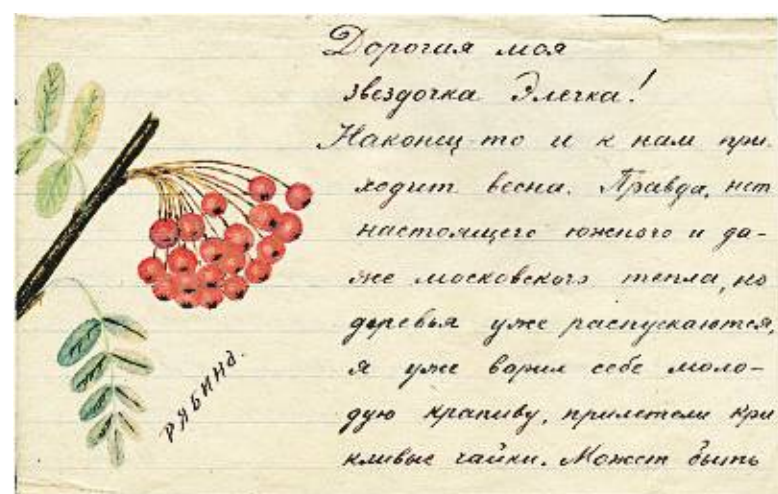 Дорогая моя
звездочка Элечка!
Наконец-то и к нам при-
ходит весна. Правда, нет
настоящего южного и да-
же московского тепла, но
деревья уже распускаются,
я уже варил себе моло-
дую крапиву, прилетели кри
кливые чайки. Может быть
РЯБИНА.